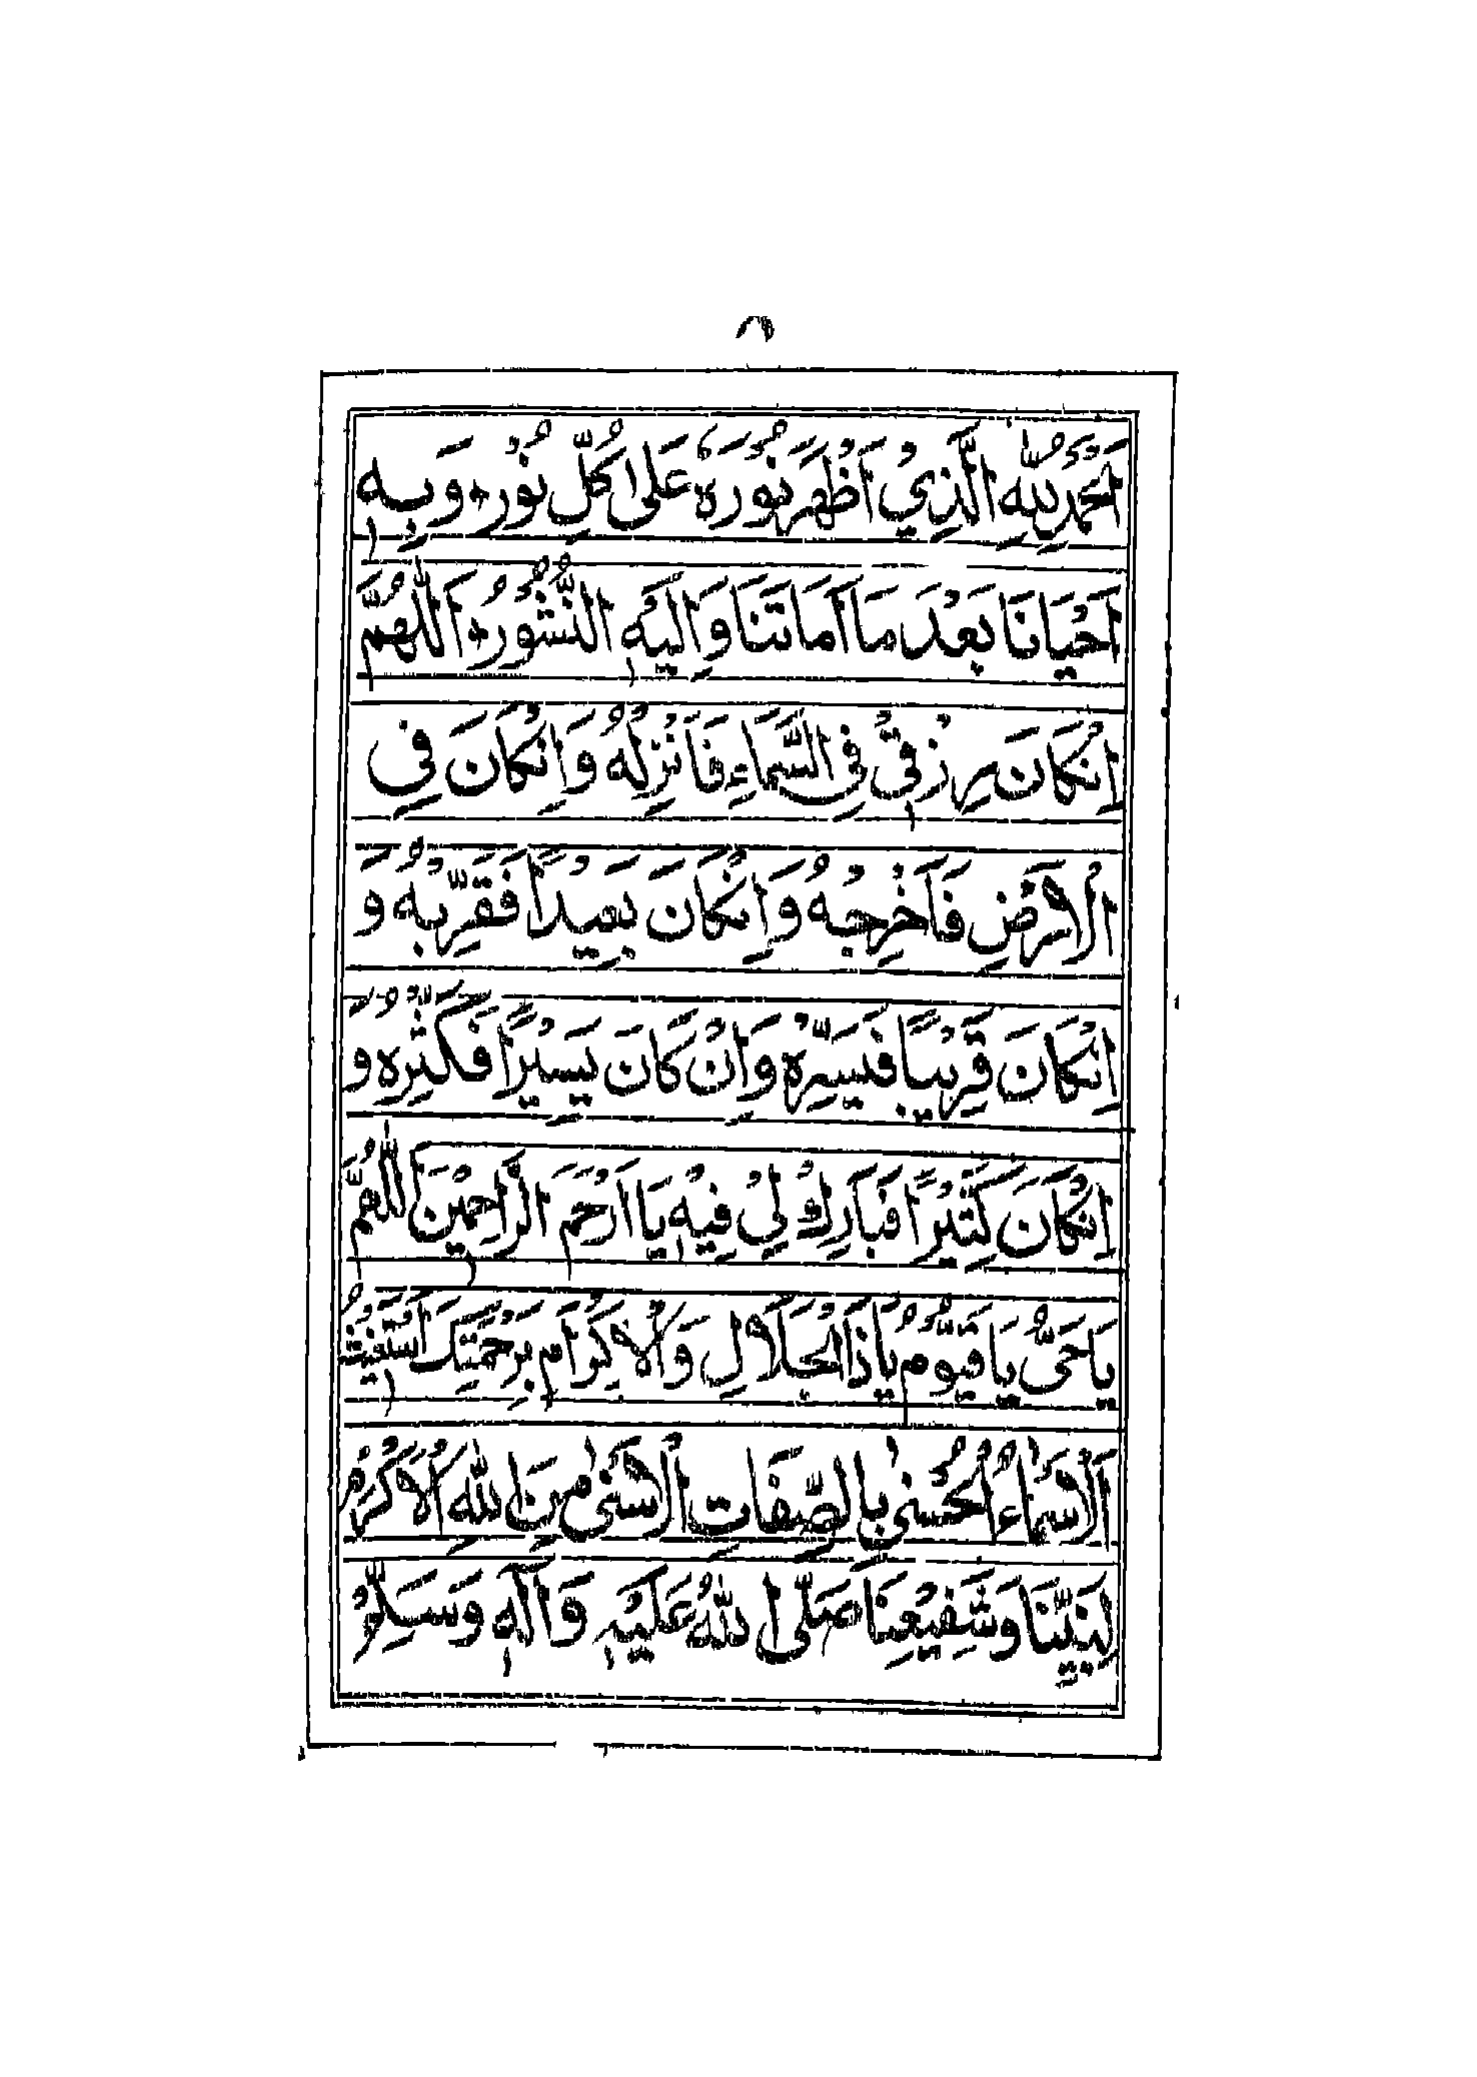 اَلْحَمْدُ لِلّٰهِ الَّذِيْ اَظْهَرَ نُوْرَهٗ عَلٰى كُلِّ نُوْرٍ وَبِهٖ
اَحْيَانَا بَعْدَ مَا اَمَاتَنَا وَاِلَيْهِ النُّشُوْرُ اَللّٰهُمَّ
اِنْكَانَ رِزْقِيْ فِي السَّمَاءِ فَاَنْزِلْهُ وَاِنْكَانَ فِي
الْاَرْضِ فَاَخْرِجْهُ وَاِنْكَانَ بَعِيْدًا فَقَرِّبْهُ وَ
اِنْكَانَ قَرِيْبًا فَيَسِّرْهُ وَاِنْ كَانَ يَسِيْرًا فَكَثِّرْهُ وَ
اِنْكَانَ كَثِيْرًا فَبَارِكْ لِيْ فِيْهِ يَا اَرْحَمَ الرَّاحِمِيْنَ اَللّٰهُمَّ
يَا حَيُّ يَا قَيُّوْمُ يَا ذَا الْجَلَالِ وَالْاِكْرَامِ بِرَحْمَتِكَ اَسْتَغِيْثُ
اَلْاَسْمَاءُ الْحُسْنٰى بِالصِّفَاتِ الْاَسْنٰى مِنَ اللّٰهِ الْاَكْرَمِ
لِنَبِيِّنَا وَشَفِيْعِنَا صَلَّى اللّٰهُ عَلَيْهِ وَاٰلِهٖ وَسَلَّمَ